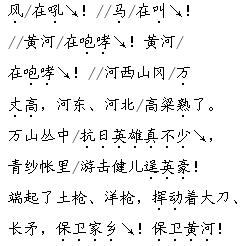 风/在吼↘！//马/在叫↘！
//黄河/在咆哮↘！黄河/
在咆哮↘！//河西山冈/万
丈高，河东、河北/高粱熟了。
万山丛中/抗日英雄真不少↘，
青纱帐里/游击健儿逞英豪！
端起了土枪、洋枪，挥动着大刀、
长矛，保卫家乡↘！保卫黄河！